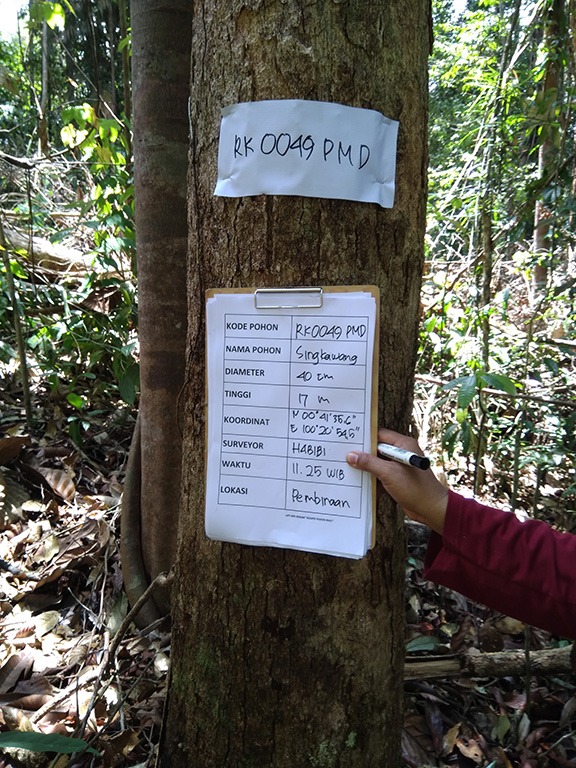 RK 0049 PMD
KODE POHON RK0049 PMD
NAMA POHON Singkawang
DIAMETER 40 cm
TINGGI 17 m
KOORDINAT N 00°41'35.6"
E 100°20'54,5"
SURVEYOR HABIBI
WAKTU 11.25 WIB
LOKASI Pembinaan